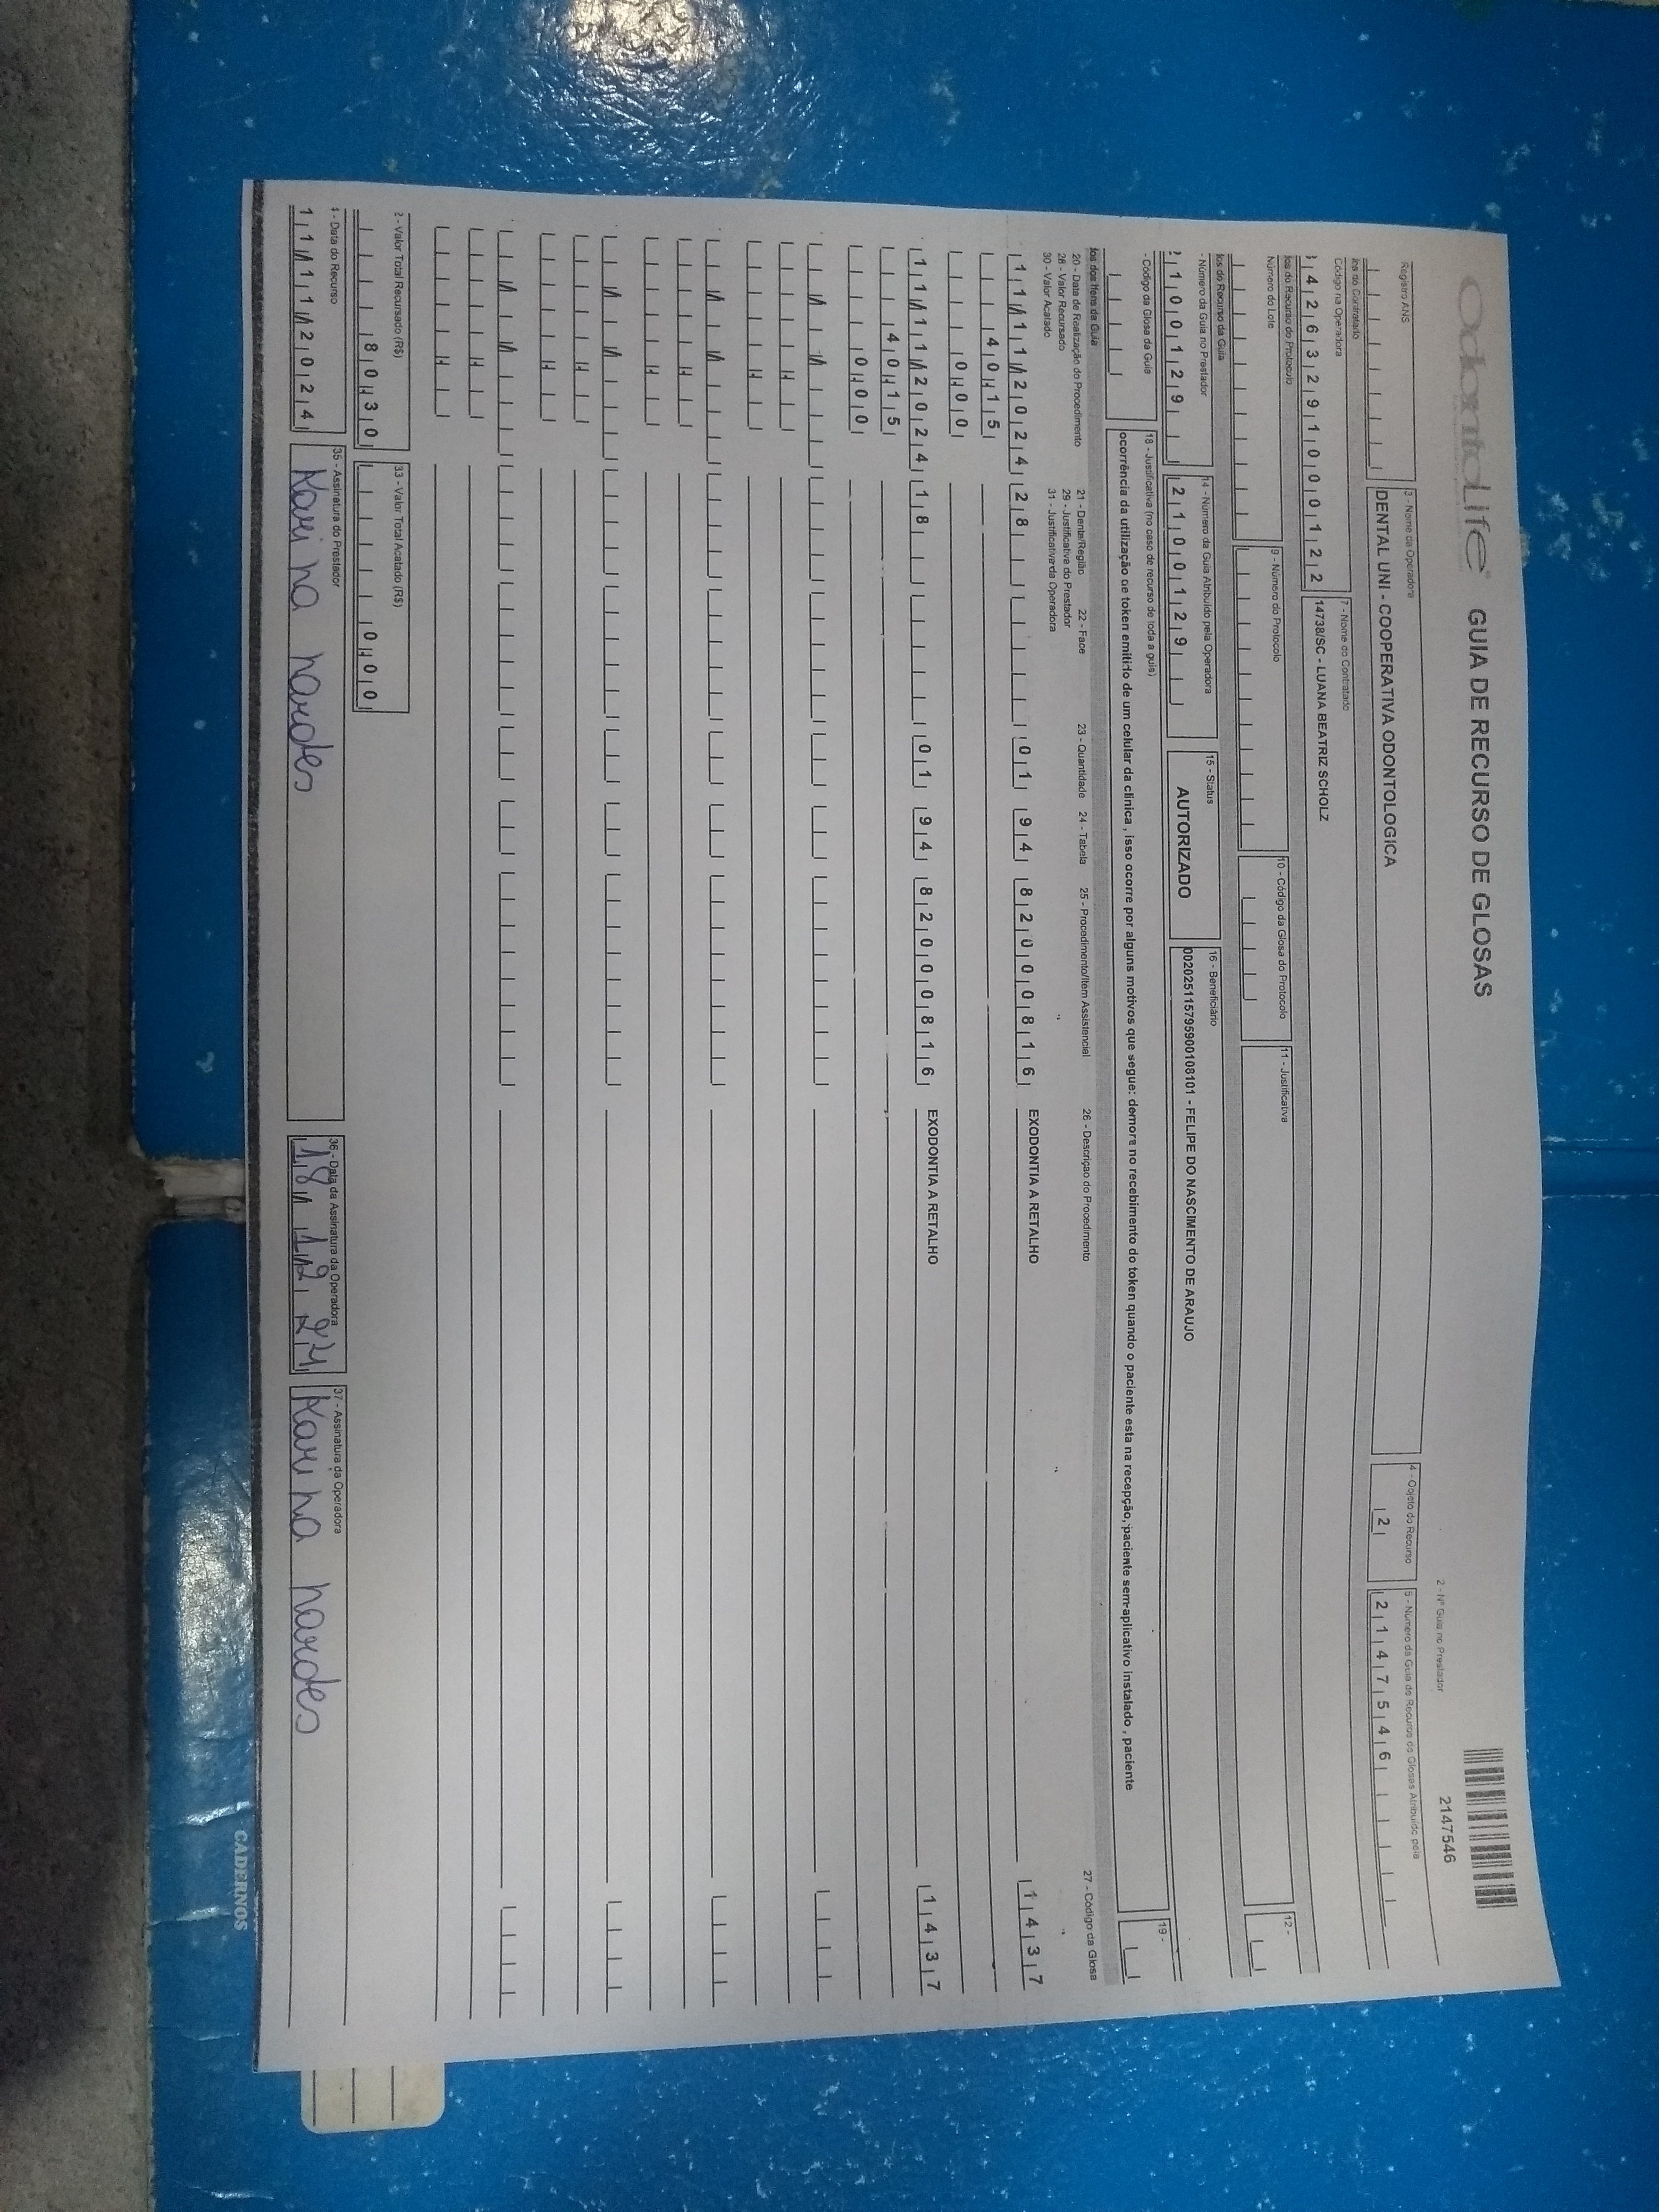 OdontoLife GUIA DE RECURSO DE GLOSAS
2147546
2 - Nº Guia no Prestador
Registro ANS
3 - Nome da Operadora
DENTAL UNI - COOPERATIVA ODONTOLOGICA
4 - Objeto do Recurso
2
5 - Número da Guia de Recurso de Glosas Atribuído pela
2147546
dos do Contratado
Código na Operadora
4263291000122
7 - Nome do Contratado
14738/SC - LUANA BEATRIZ SCHOLZ
dos do Recurso do Protocolo
Número do Lote
9 - Número do Protocolo
10 - Código da Glosa do Protocolo
11 - Justificativa
12 -
dos do Recurso da Guia
- Número da Guia no Prestador
2100129
14 - Número da Guia Atribuído pela Operadora
2100129
15 - Status
AUTORIZADO
16 - Beneficiário
00202511579590010810​1 - FELIPE DO NASCIMENTO DE ARAUJO
- Código da Glosa da Guia
18 - Justificativa (no caso de recurso de toda a guia)
ocorrência da utilização de token emitido de um celular da clinica , isso ocorre por alguns motivos que segue: demora no recebimento do token quando o paciente esta na recepção, paciente sem aplicativo instalado , paciente
19 -
dos dos Itens da Guia
20 - Data de Realização do Procedimento 21 - Dente/Região 22 - Face 23 - Quantidade 24 - Tabela 25 - Procedimento/Item Assistencial 26 - Descrição do Procedimento 27 - Código da Glosa
28 - Valor Recursado 29 - Justificativa do Prestador
30 - Valor Acatado 31 - Justificativa da Operadora
11/11/2024 28 01 94 82000816 EXODONTIA A RETALHO 1437
40,15
0,00
11/11/2024 18 01 94 82000816 EXODONTIA A RETALHO 1437
40,15
0,00
2 - Valor Total Recursado (R$)
80,30
33 - Valor Total Acatado (R$)
0,00
1 - Data do Recurso
11/11/2024
35 - Assinatura do Prestador
Karina nardes
36 - Data da Assinatura da Operadora
18/12/24
37 - Assinatura da Operadora
Karina nardes
CADERNOS